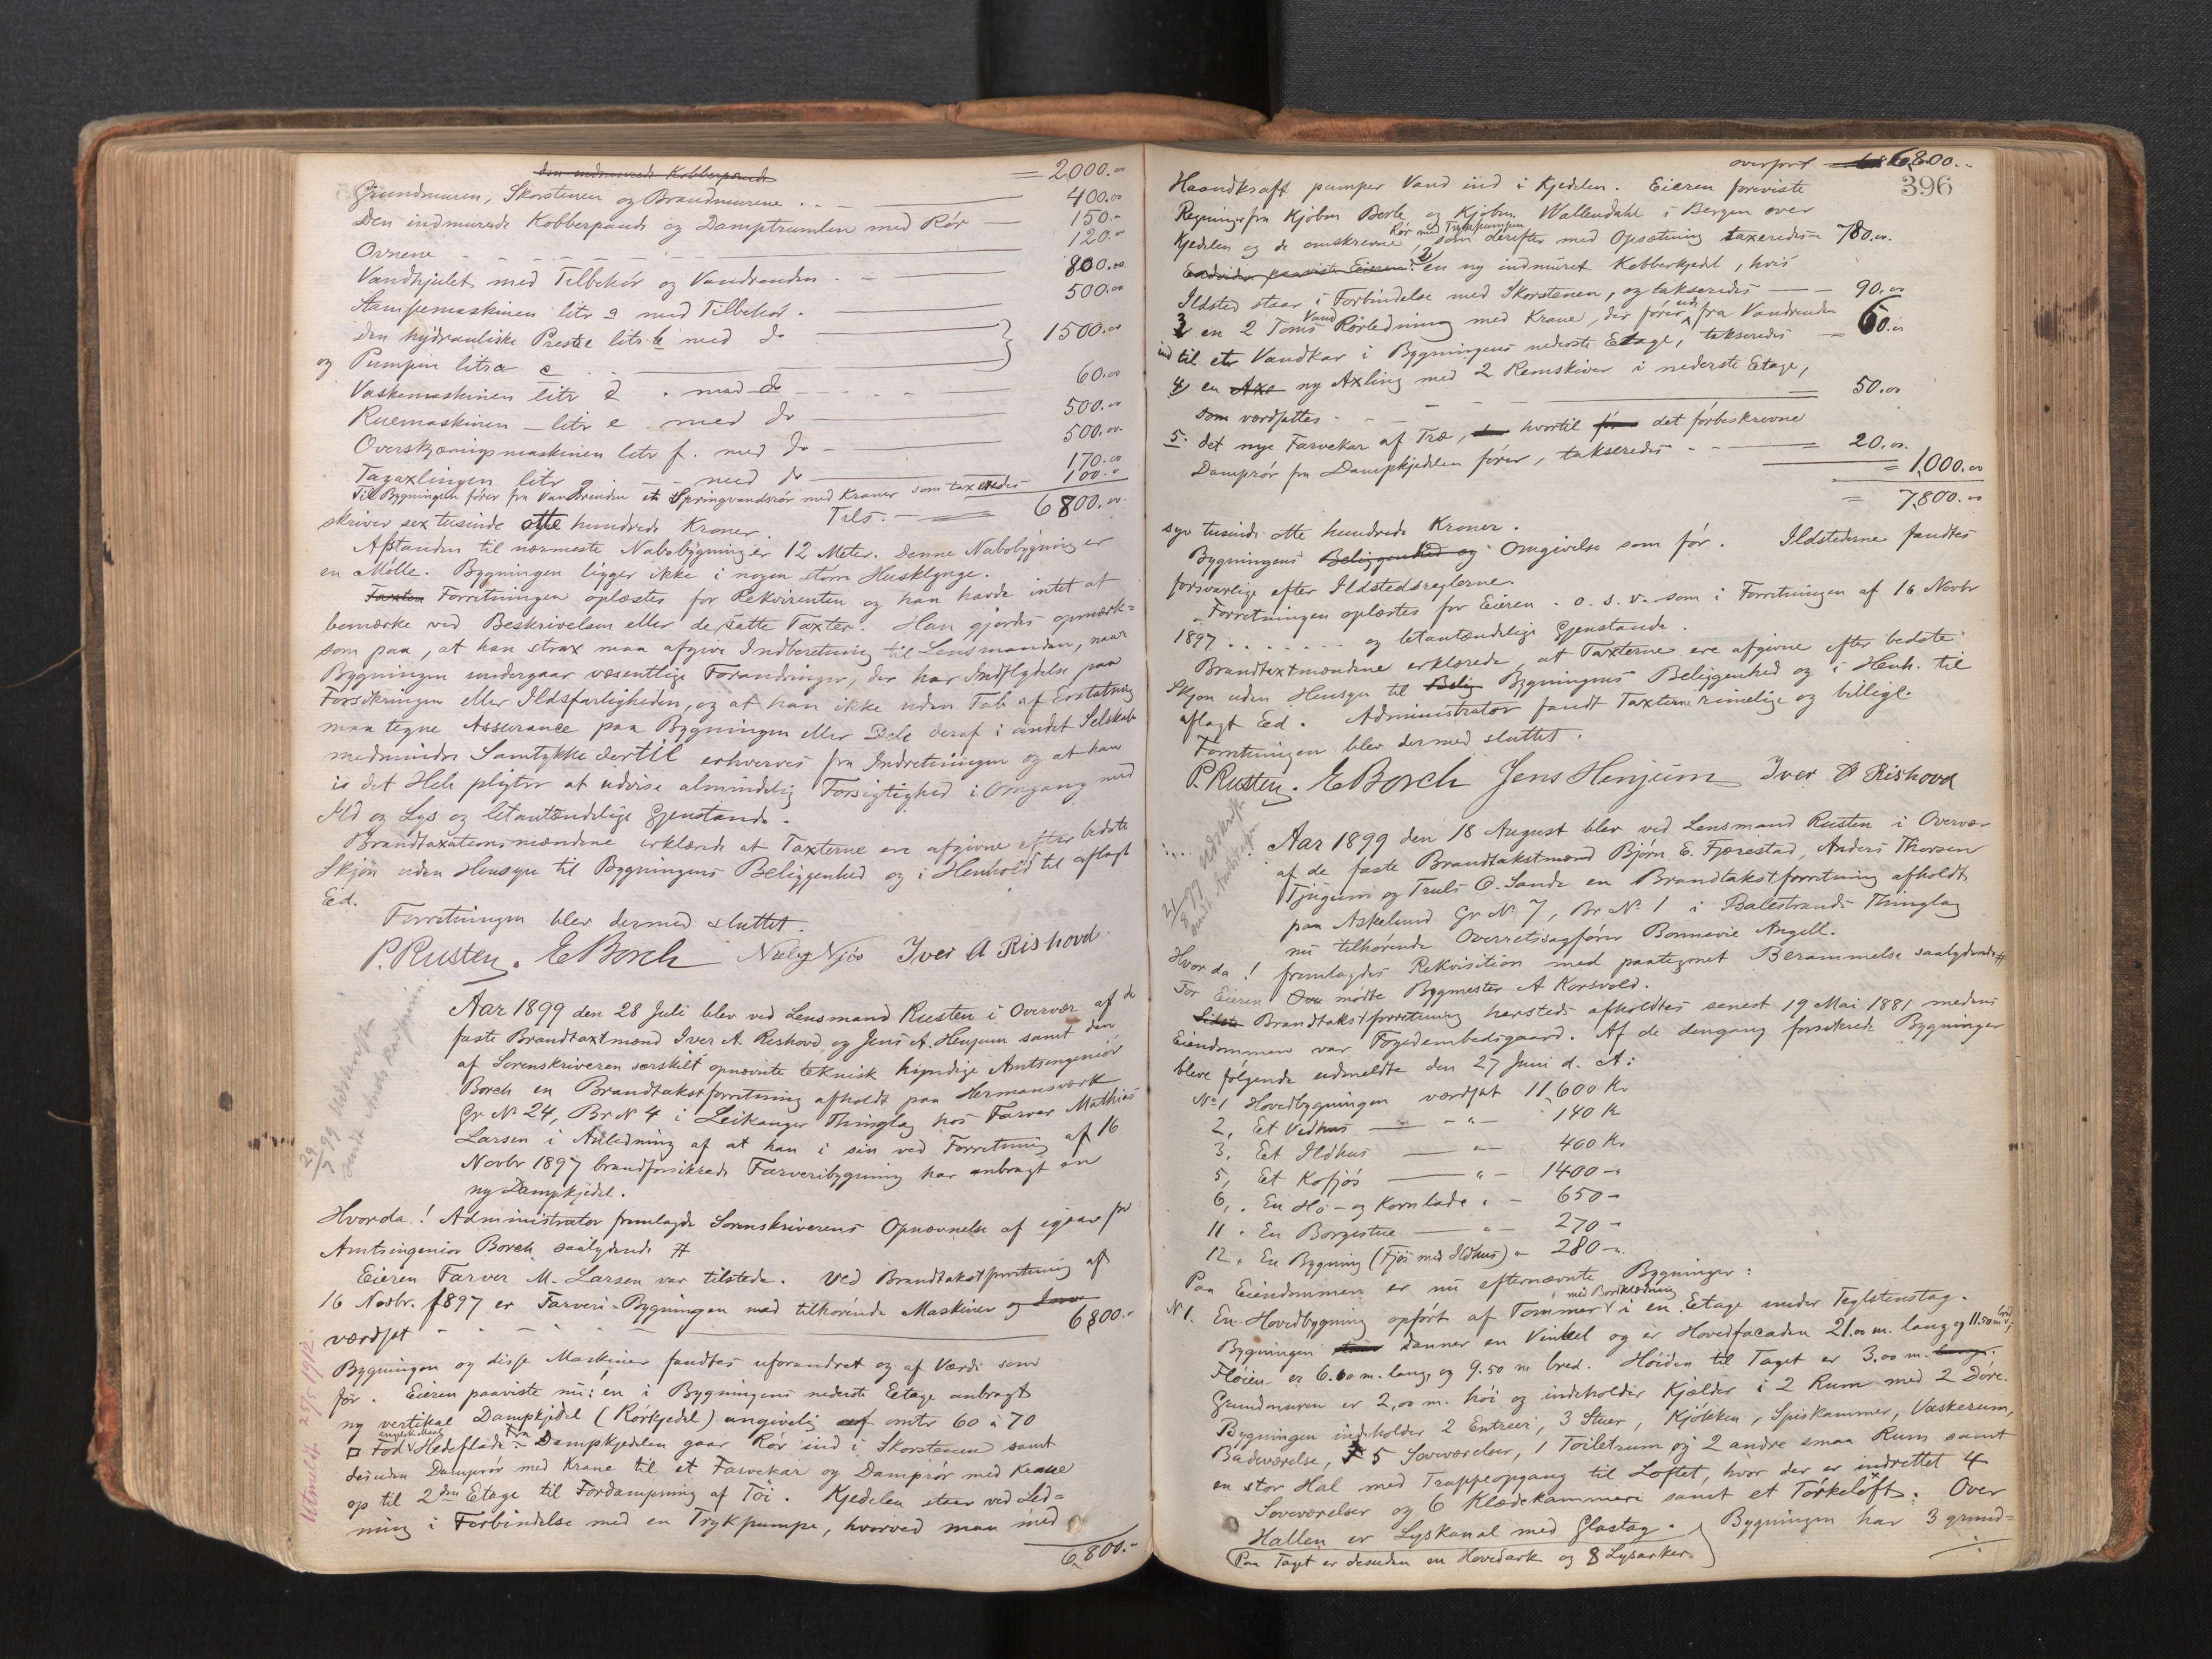 den indmurede Kobberpande = 2000.00
Grundmuren, Skorstenen og Brandmurene . . — 400.00
Den indmurede Kobberpande og Damptromlen med Rör — 150.-
Ovnene — 120.00
Vandhjulet med Tilbehör og Vandrenden — 800.00
Stampemaskinen litr a med Tilbehör . — 500.00
Den hydrauliske Presse litr b med do
og Pumpen litra c . — 1500.00
Vaskemaskinen litr d . med do — 60.00
Ruemaskinen — litr e . med do — 500.00
Overskjæringsmaskinen litr f . med do — 500.00
Tagaxlingen litr g . — med do — 170.00
Til Bygningen förer fra Vandrenden et Springvandsrör med Kraner som taxeredes — 100.-
skriver sex tusinde otte hundrede Kroner. Tils. — 6800.00
Afstanden til nærmeste Nabobygning er 12 Meter. Denne Nabobygning er
en Mölle. Bygningen ligger ikke i nogen större Husklynge.
Taxten Forretningen oplæstes for Rekvirenten og han havde intet at
bemærke ved Beskrivelsen eller de satte Taxter. Han gjordes opmærk=
som paa, at han strax maa afgive Indberetning til Lensmanden, naar
Bygningen undergaar væsentlige Forandringer, der har Indflydelse paa
Forsikringen eller Ildsfarligheden, og at han ikke uden Tab af Erstatning
maa tegne Assurance paa Bygningen eller Dele deraf i andet Selskab
medmindre Samtykke dertil erhverves fra Indretningen og at han
i det Hele pligter at udvise almindelig Forsigtighed i Omgang med
Ild og Lys og letantændelige Gjenstande.
Brandtaxationsmændene erklærede at Taxterne ere afgivne efter bedste
Skjön uden Hensyn til Bygningens Beliggenhed og i Henhold til aflagt
Ed.
Forretningen blev dermed sluttet.
P. Rusten. E Borch Njös Iver A Rishovd.
29/7 99 Udskrift
sendt Amtskasserer
Aar 1899 den 28 Juli blev ved Lensmand Rusten i Overvær af de
faste Brandtaxtmænd Iver A. Rishovd og Jens A. Henjum samt den
af Sorenskriveren særskilt opnævnte teknisk kyndige Amtsingeniör
Borch en Brandtakstforretning afholdt paa Hermansværk
Gr No 24, Br No 4 i Leikanger Thinglag hos Farver Mathias
Larsen i Anledning af at han i sin ved Forretning af 16
Novbr 1897 brandforsikrede Farveribygning har anbragt en
ny Dampkjedel.
Hvorda! Administrator fremlagde Sorenskriverens Opnævnelse af igaar for
Amtsingeniör Borch saalydende #
Eieren Farver M. Larsen var tilstede. Ved Brandtakstforretning af
16 Novbr. 1897 er Farveri-Bygningen med tilhörende Maskiner og
værdsat — 6800.-
Bygningen og disse Maskiner fandtes uforandret og af Værdi som
för. Eieren paaviste nu: en i Bygningens nederste Etage anbragt
ny vertikal Dampkjedel (Rörkjedel) angivelig af omtr 60 à 70
□ Fod engelsk Maal Hedeflade. Fra Dampkjedelen gaar Rör ind i Skorstenen samt
desuden Damprör med Krane til et Farvekar og Damprör med Krane
op til 2den Etage til Fordampning af Töi. Kjedelen staar ved Led=
ning i Forbindelse med en Trykpumpe, hvorved man med
6,800.-
Utmeldt 25/5 1912
overført 6,800.-
396
Haandkraft pumper Vand ind i Kjedelen. Eieren foreviste
Regninger fra Kjöbm Berle og Kjöbm. Wallendahl i Bergen over
Kjedelen og de omskrevne Rör med Trykpumpen, som derefter med Opsætning taxeredes — 780.00
Endvidere paaviste Eieren: 2) en ny indmuret Kobberkjedel, hvis
Ildsted staar i Forbindelse med Skorstenen, og takseredes — 90.00
3 en 2 Toms Vand Rörledning med Krane, der förer ud fra Vandrenden
ind til et Vandkar i Bygningens nederste Etage, takseredes = 60.00
4, en Axe ny Axling med 2 Remskiver i nederste Etage,
som værdsattes — 50.00
5. det nye Farvekar af Træ, hvortil det förbeskrevne
Damprör fra Dampkjedelen förer, takseredes — 20.00
= 1,000.00
= 7,800.00
syv tusinde otte hundrede Kroner.
Bygningens Beliggenhed og Omgivelse som för. Ildstederne fandtes
forsvarlige efter Ildstedsreglerne.
Forretningen oplæstes for Eieren . o. s. v. som i Forretningen af 16 Novbr
1897 . . . . . . . og letantændelige Gjenstande.
Brandtaxtmændene erklærede, at Taxterne ere afgivne efter bedste
Skjön uden Hensyn til Belig Bygningens Beliggenhed og i Henh. til
aflagt Ed. Administrator fandt Taxterne rimelige og billige.
Forretningen blev dermed sluttet.
P. Rusten. E Borch Jens Henjum Iver A Rishovd
21/8 99 Udskrift
sendt Amtskass
Aar 1899 den 18 August blev ved Lensmand Rusten i Overvær
af de faste Brandtakstmænd Björn E. Fjærestad, Anders Thorsen
Tjugum og Truls O. Sande en Brandtakstforretning afholdt
paa Askelund Gr No 7, Br No 1 i Balestrands Thinglag
nu tilhörende Overretssagförer Bonnevie Angell.
Hvorda! fremlagdes Rekvisition med paategnet Berammelse saalydende #
For Eieren mödte Bygmester A Korsvold.
Sidste Brandtakstforretning hersteds afholdtes senest 19 Mai 1881 medens
Eiendommen var Fogedembedsgaard. Af de dengang forsikrede Bygninger
bleve fölgende udmeldte den 27 Juni d. A:
No 1 Hovedbygningen værdsat 11,600 Kr
2, Et Vedhus — " — 140 Kr
3, Et Ildhus — " — 400 Kr
5, Et Kofjös — " — 1400 -
6, En Hö- og Kornlade " — 650 -
11. En Borgestue — " — 270 -
12. En Bygning (Fjös med Ildhus) " 280 -
Paa Eiendommen er nu efternævnte Bygninger:
No 1. En Hovedbygning opfört af Tömmer med Bordklædning i en Etage under Teglstenstag.
Bygningen danner en Vinkel og er Hovedfacaden 21.00 m. lang og 11.50 m bred;
Flöien er 6.00 m. lang og 9.50 m bred. Höiden til Taget er 3.00 m. lang.
Grundmuren er 2,00 m. höi og indeholder Kjælder i 2 Rum med 2 Döre.
Bygningen indeholder 2 Entreer, 3 Stuer, Kjökken, Spiskammer, Vaskerum,
Badeværelse, 5 Soveværelser, 1 Toiletrum og 2 andre smaa Rum samt
en stor Hal med Trappeopgang til Loftet, hvor der er indrettet 4
Soveværelser og 6 Klædekammere samt et Törkeloft. Over
Hallen er Lyskanal med Glastag. Bygningen har 3 grund=
(Paa Taget er desuden en Hovedark og 8 Lysarker.)